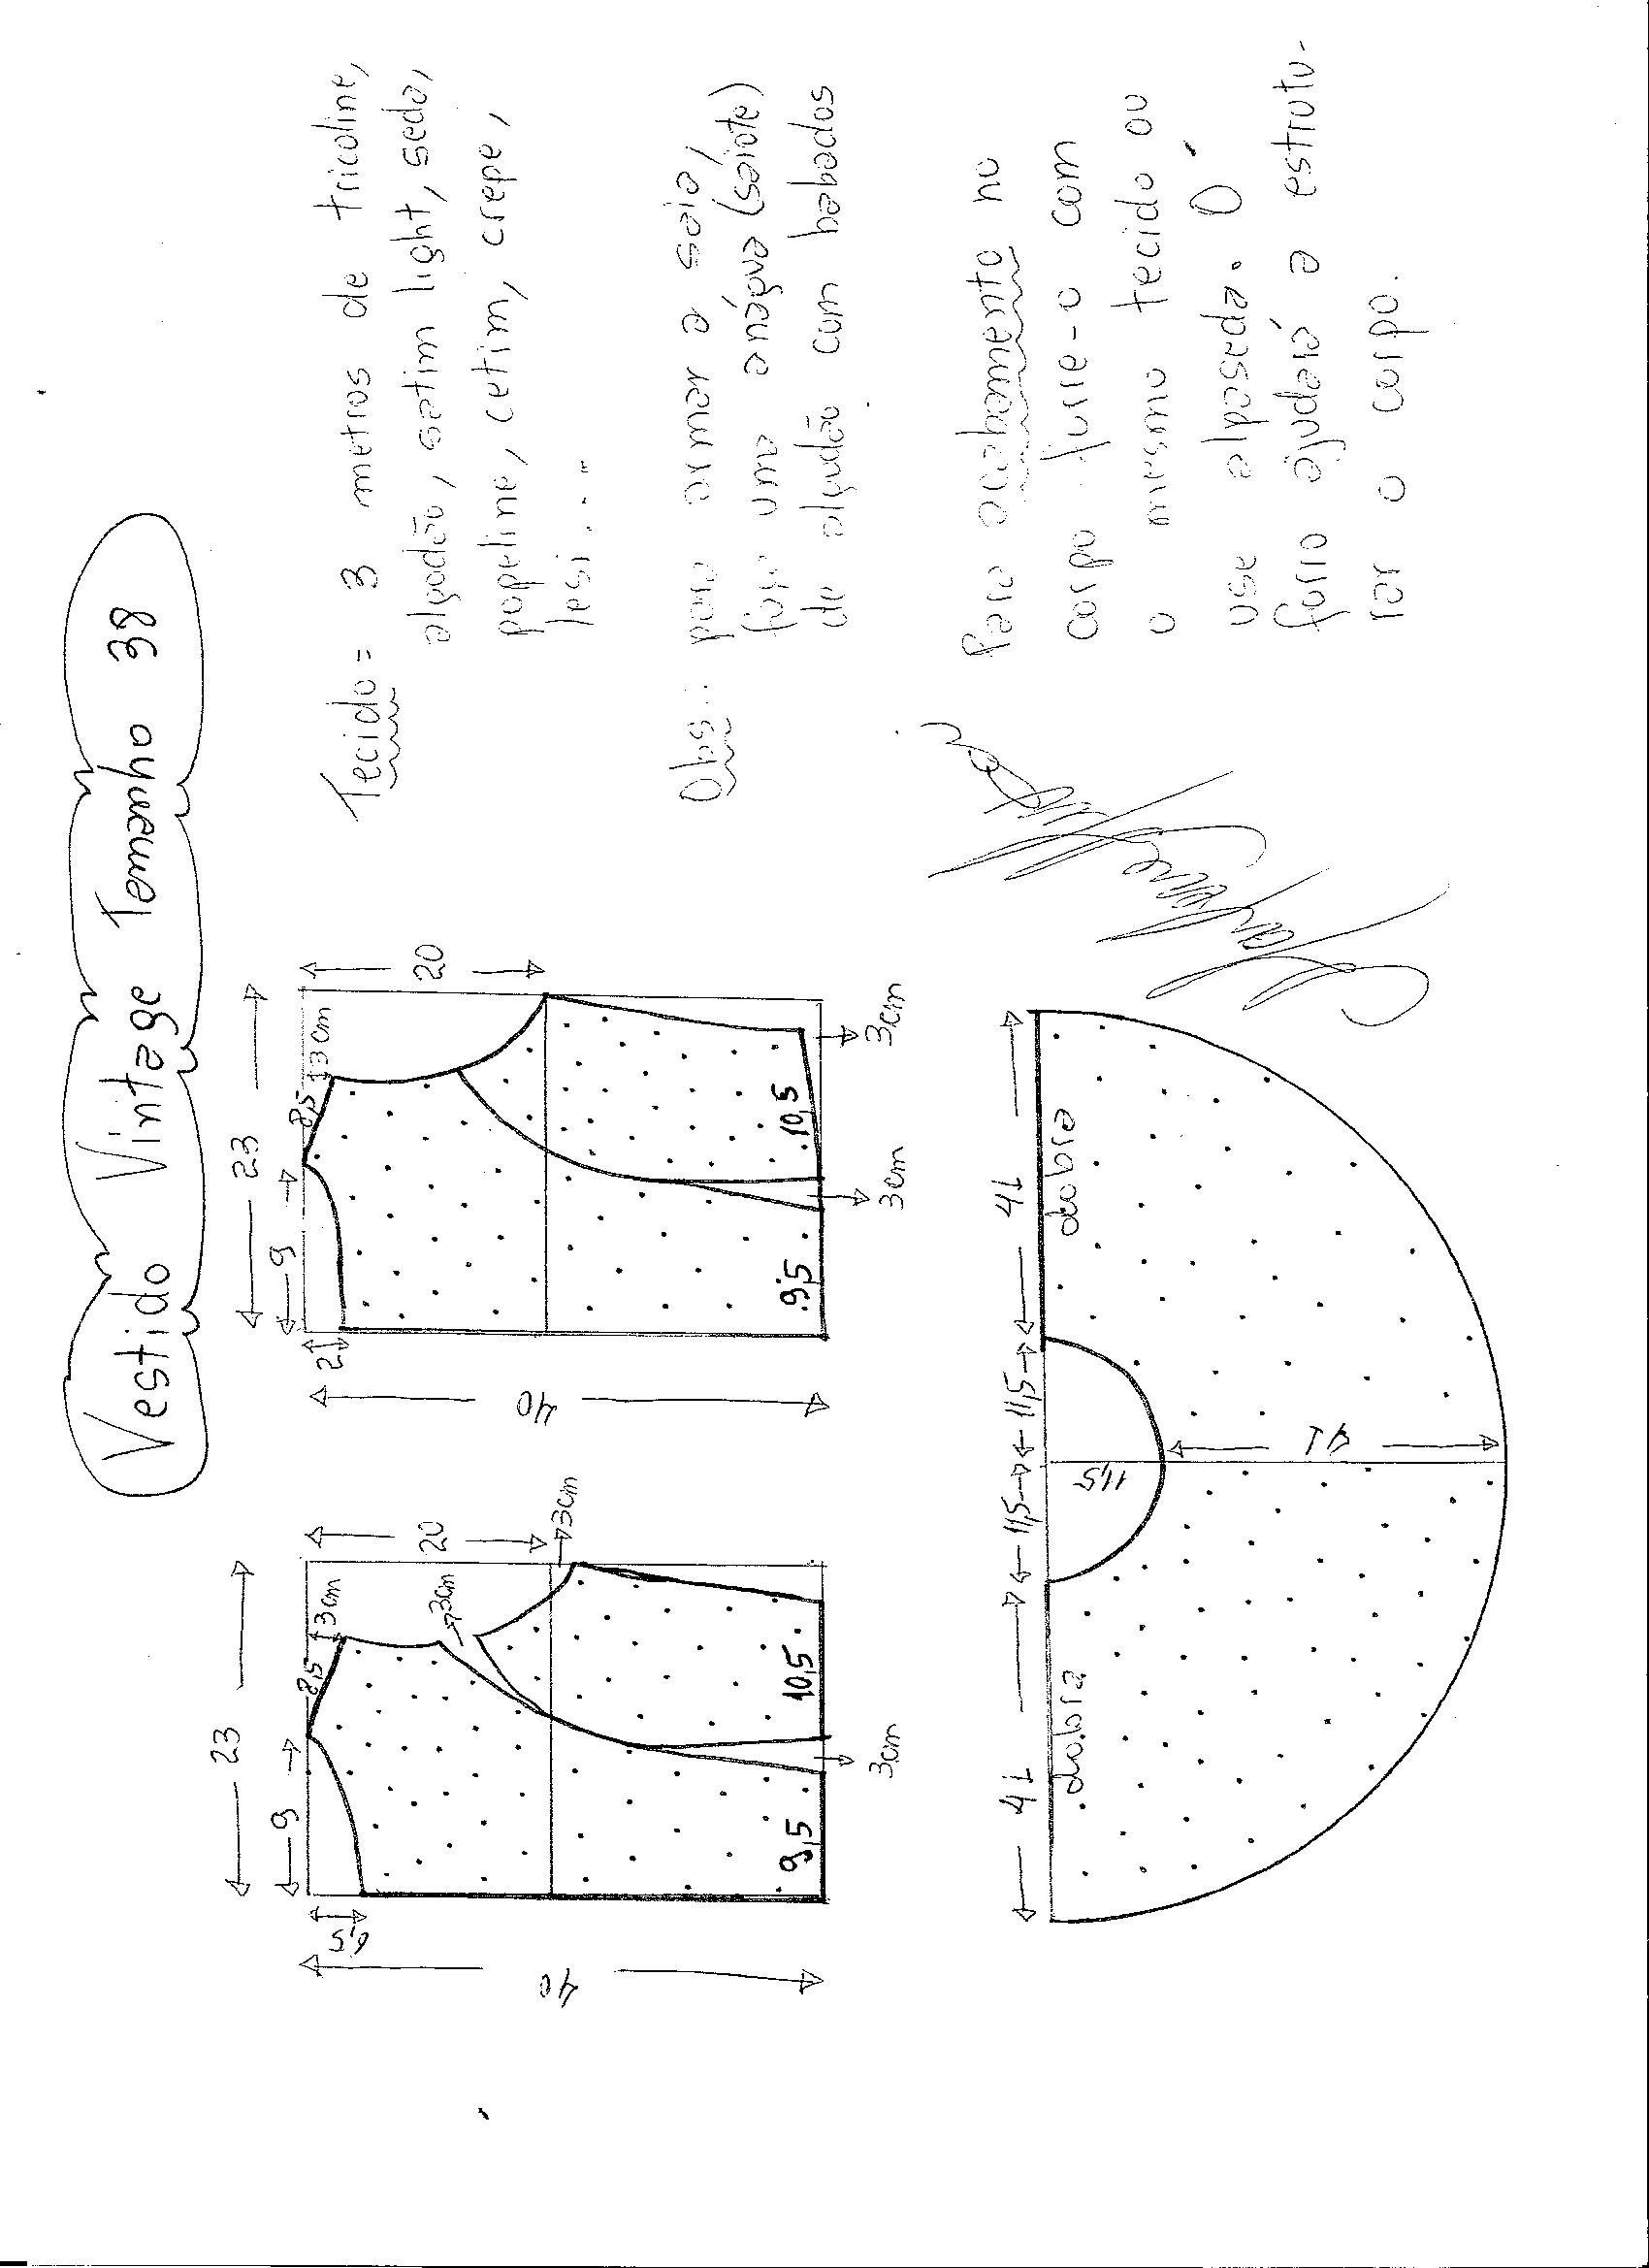 Vestido Vintage Tamanho 38
23
9
8,5
3cm
6,5
40
20
3cm
3cm
9,5
10,5
3cm
23
9
8,5
3cm
2
40
20
9,5
10,5
3cm
3cm
41
11,5
11,5
41
dobra
dobra
11,5
41
Tecido = 3 metros de tricoline,
algodão, satim light, seda,
popeline, cetim, crepe,
lesi...
Obs.: para armar a saia,
faça uma anágua (saiote)
de algodão com babados
Para acabamento no
corpo forre-o com
o mesmo tecido ou
use alpaseda. O
forro ajudará a estrutu-
rar o corpo.